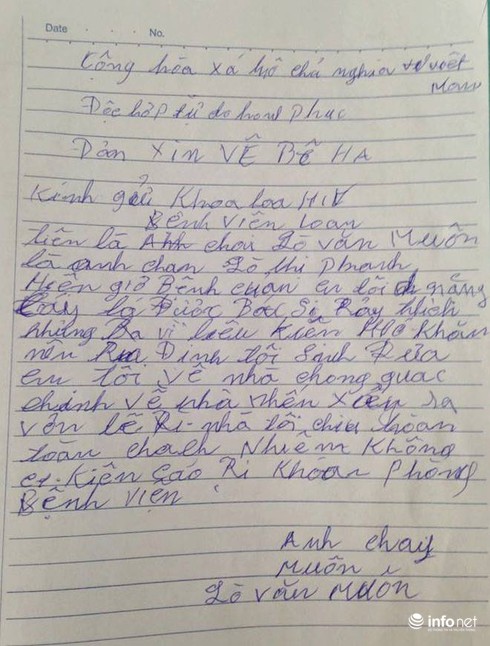 Date No.
Cộng hòa xá hộ chủ nghia
Nam
Dộc hớp tự do hanh phuc
Dản XIN VỄ BẾ HA
Kính gửi Khoa loa HIV
Bệnh Viên Loan
tiên là Anh chai Lò văn Muôn
là anh cham Lò thi Phanh
Hiện giờ Bệnh cuản en tôi
là Được Bác Sĩ hich
nhưng Ra vì liêu Kiên Khăn
nên Dình tôi Sinh Đưa
em tôi về nhà chong quac
chinh về nhà nhến xiên ra
vốn lề Ri nhà tôi chiu hoan
toàn chach Nhiêm Không
Kiên Cáo Ri Khoan Phòng
Bệnh viên
Anh chay
Muôn
Lò văn Muôn
infonet